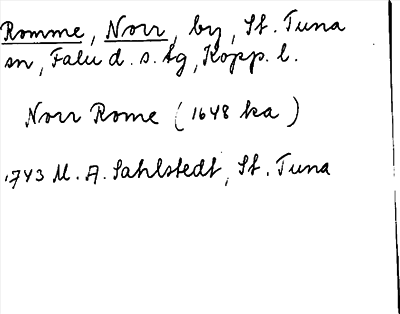 Romme, Norr, by, St. Tuna
sn, Falu d. s. tg, Kopp. l.
Norr Rome (1648 ka)
1743 M. A. Sahlstedt, St. Tuna